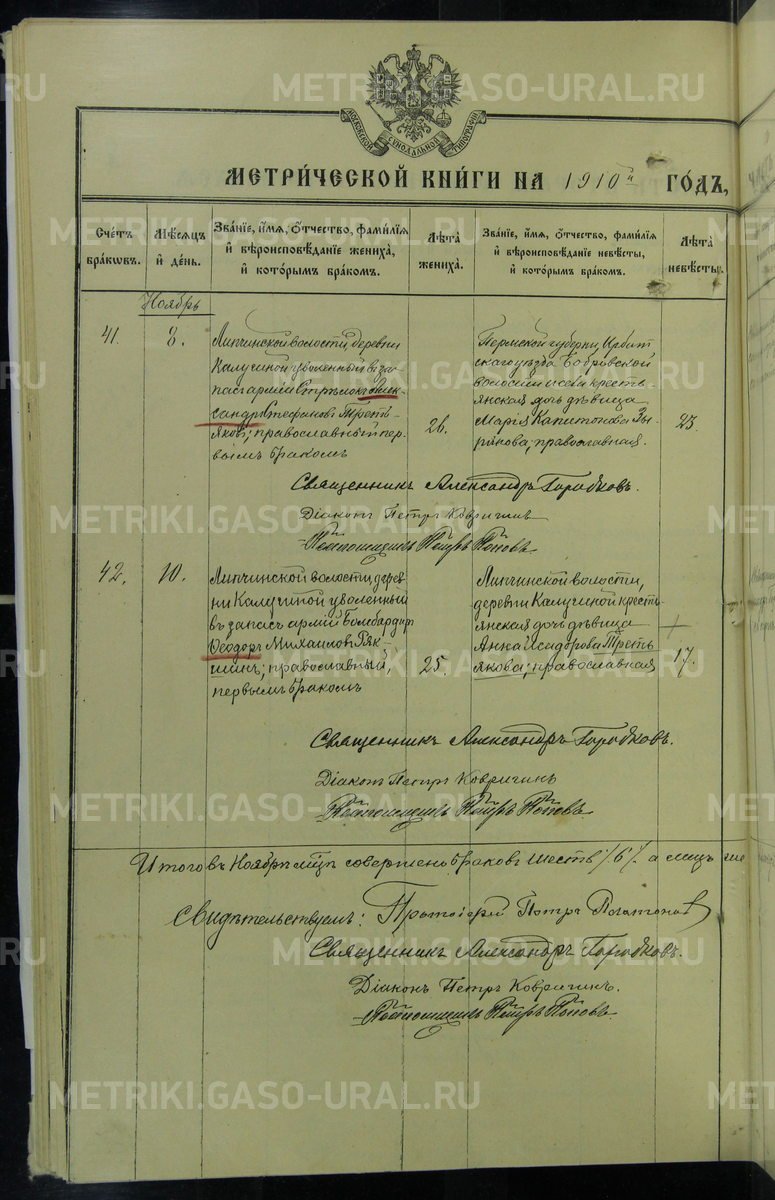 METRIKI.GASO-URAL.RU
МОСКОВСКОЙ СѴНОДАЛЬНОЙ ТИПОГРАФІИ
МЕТРИ́ЧЕСКОЙ КНИ́ГИ НА 1910й ГО́ДЪ,
Сче́тъ бра́ковъ.
Мѣ́сяцъ и҆ де́нь.
Зва́нїе, и҆́мѧ, ѻ҆́тчество, фами́лїѧ и҆ вѣроисповѣ́данїе жениха̀, и҆ кото́рымъ бра́комъ.
Лѣ́та жениха̀.
Зва́нїе, и҆́мѧ, ѻ҆́тчество, фами́лїѧ и҆ вѣроисповѣ́данїе невѣ́сты, и҆ кото́рымъ бра́комъ.
Лѣ́та невѣ́сты.
Ноябрь
41.
8.
Липчинской волости, деревни
Калугиной уволенный въ за-
пас армiи Стрѣлокъ Алек-
сандръ Стефановъ Треть-
яковъ; православный, пер-
вымъ бракомъ
26.
Пермской губернiи, Ирбит
скаго уѣзда Бобровской
волости и села кресть-
янская дочь дѣвица
Марiя Капитонова Зы-
рянова, православная.
23.
Священникъ Александръ Городковъ.
Дiаконъ Петръ Ковригинъ
Псаломщикъ Петръ Поповъ
42.
10.
Липчинской волости, дерев
ни Калугиной уволенный
въ запасъ армiи Бомбардиръ
Ѳеодоръ Михаиловъ Ряк-
шинъ; православный,
первымъ бракомъ
25.
Липчинской волости,
деревни Калугиной кресть-
янская дочь дѣвица
Анна Исидорова Треть
якова; православная
17.
Священникъ Александръ Городковъ.
Дiаконъ Петръ Ковригинъ
Псаломщикъ Петръ Поповъ
Итого въ Ноябрѣ мѣсяцѣ совершено браковъ шесть /6/. а лицъ
Свидѣтельствуемъ: Протоiерей Петръ
Священникъ Александръ Городковъ.
Дiаконъ Петръ Ковригинъ.
Псаломщикъ Петръ Поповъ